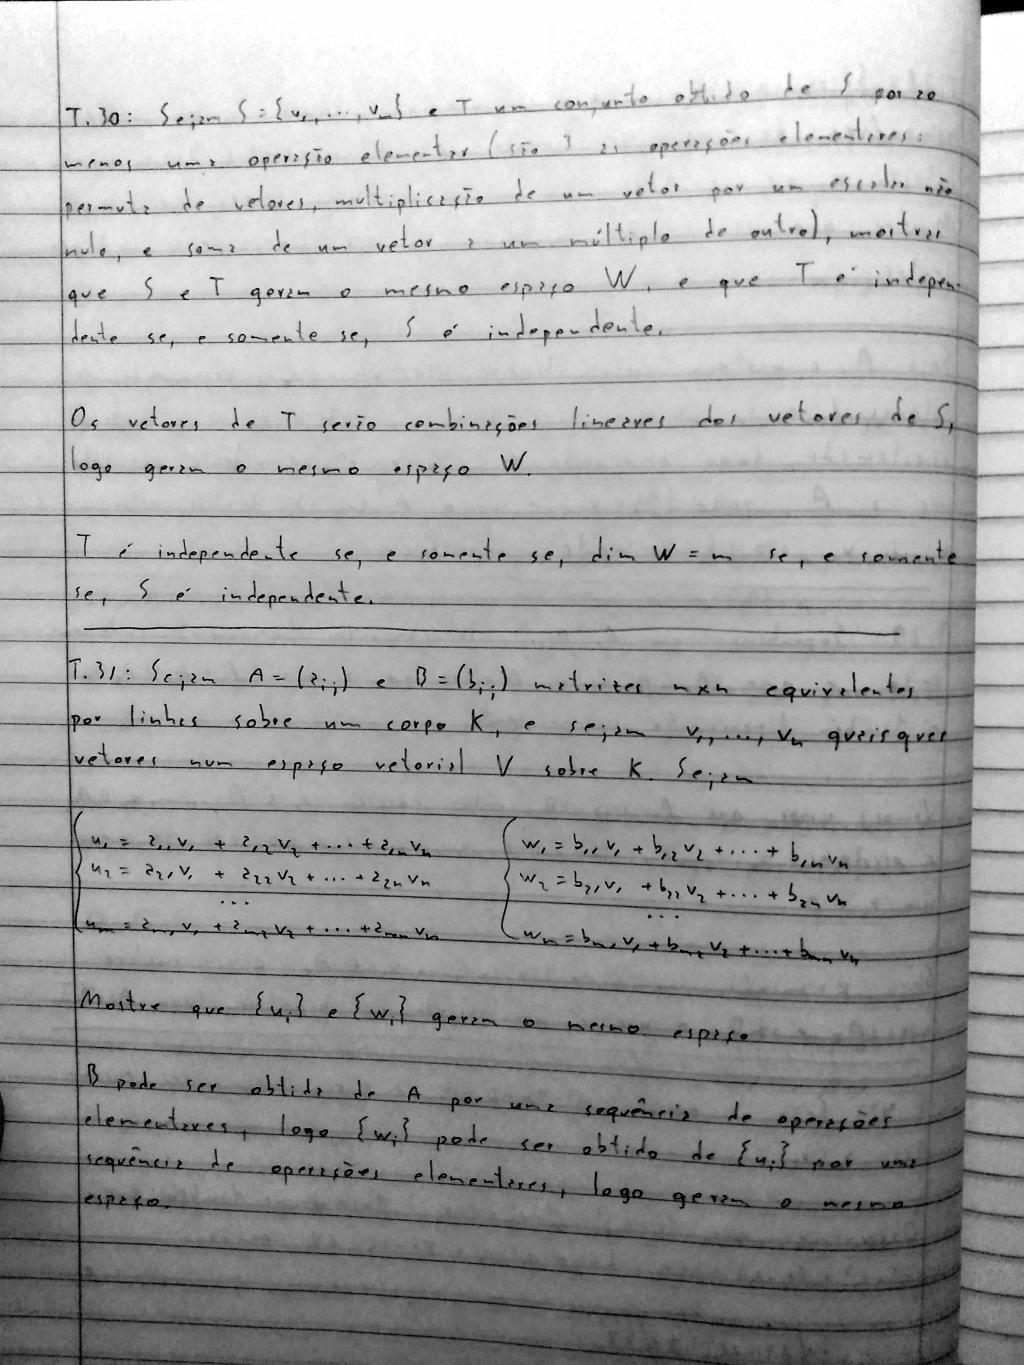 T.30: Sejam S={v₁,...,vₘ} e T um conjunto obtido de S por ao
menos uma operação elementar (são 3 as operações elementares:
permuta de vetores, multiplicação de um vetor por um escalar não
nulo, e soma de um vetor a um múltiplo de outro), mostrar
que S e T geram o mesmo espaço W, e que T é indepen-
dente se, e somente se, S é independente.
Os vetores de T serão combinações lineares dos vetores de S,
logo geram o mesmo espaço W.
T é independente se, e somente se, dim W = m se, e somente
se, S é independente.
T.31: Sejam A=(aᵢⱼ) e B=(bᵢⱼ) matrizes mxn equivalentes
por linhas sobre um corpo K, e sejam v₁,...,vₙ quaisquer
vetores num espaço vetorial V sobre K. Sejam
u₁ = a₁₁v₁ + a₁₂v₂ + ... + a₁ₙvₙ w₁ = b₁₁v₁ + b₁₂v₂ + ... + b₁ₙvₙ
u₂ = a₂₁v₁ + a₂₂v₂ + ... + a₂ₙvₙ w₂ = b₂₁v₁ + b₂₂v₂ + ... + b₂ₙvₙ
... ...
uₘ = aₘ₁v₁ + aₘ₂v₂ + ... + aₘₙvₙ wₘ = bₘ₁v₁ + bₘ₂v₂ + ... + bₘₙvₙ
Mostre que {uᵢ} e {wᵢ} geram o mesmo espaço
B pode ser obtida de A por uma sequência de operações
elementares, logo {wᵢ} pode ser obtido de {uᵢ} por uma
sequência de operações elementares, logo geram o mesmo
espaço.